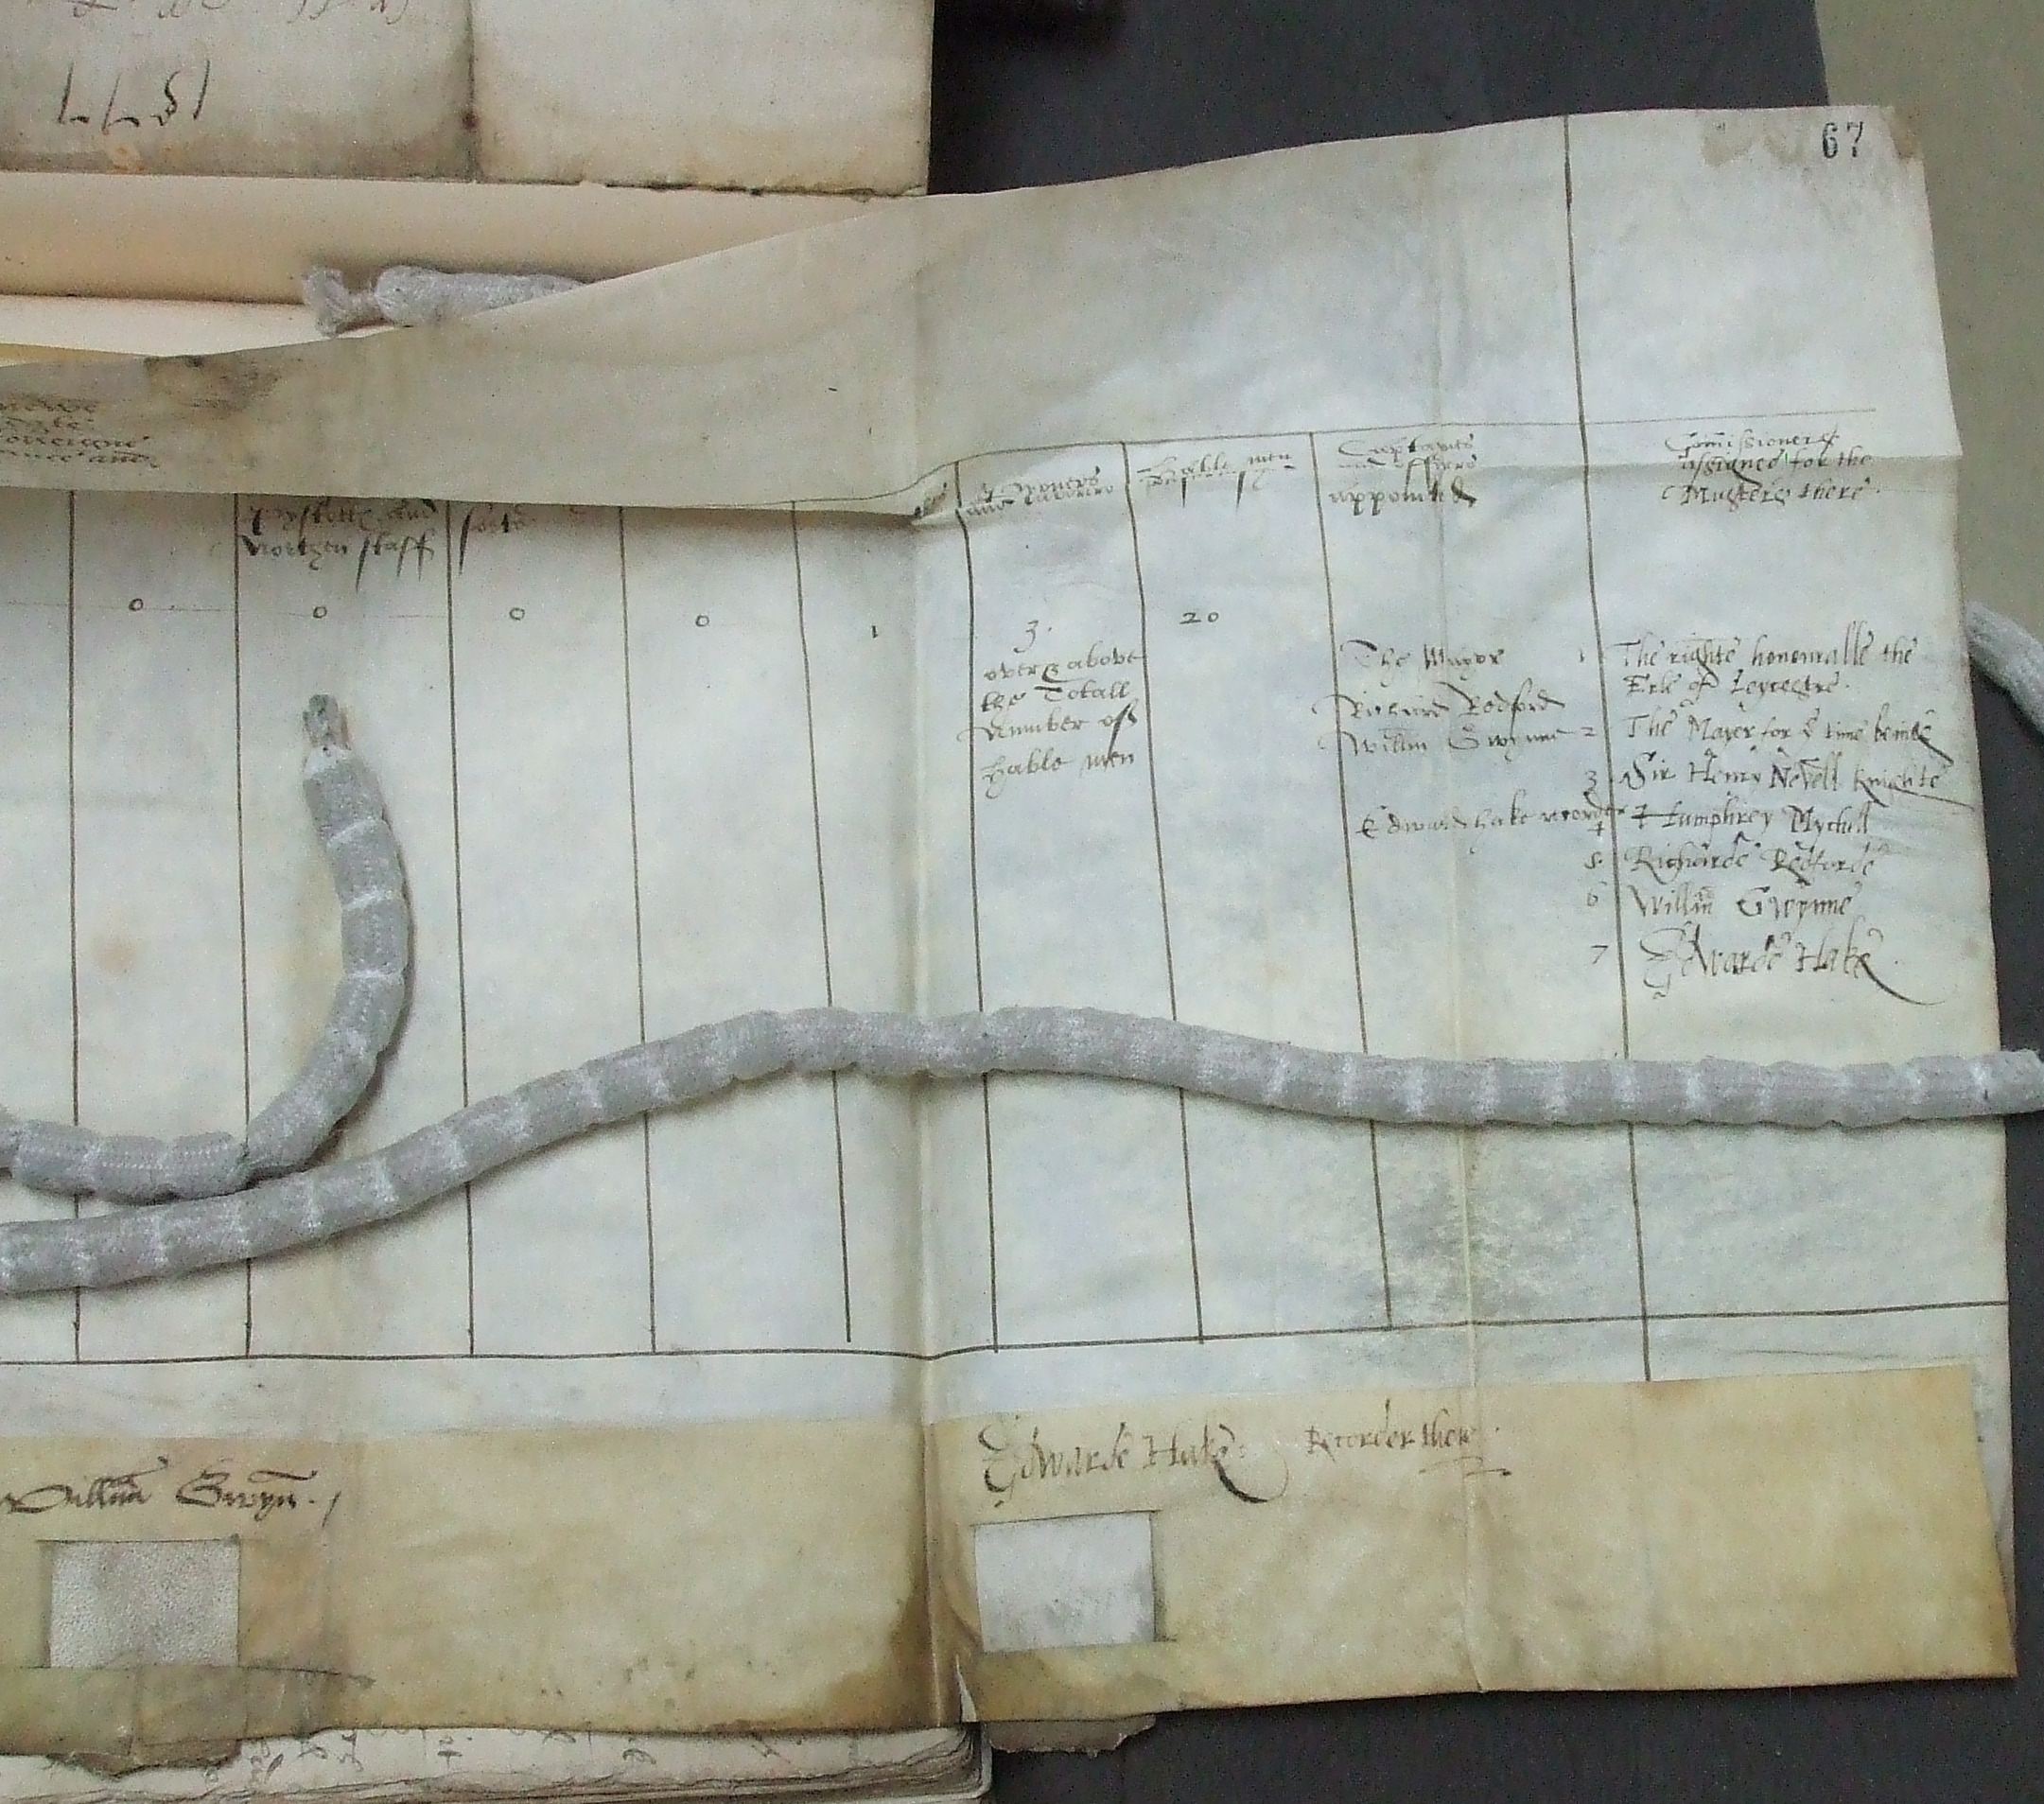 1577
67
staff
sorte
Pyoners
and
hable men
Captayns
and officers
appointed
Comissioners
assigned for the
Musters there
0
0
0
0
1
3.
over & above
the Totall
Number off
hable men
20
The Mayor
Richard Redford
Willm Gwynne
Edward hake recorder
1 The righte honoralle the
Erle of Leycestre.
2 The Mayer for ye time beinge
3 Sir Henry Nevell knighte
4 Humphrey Mychell
5 Richarde Redforde
6 Willm Gwynne
7 Edwarde Hake.
Willm Gwyn.
Edwarde Hake: Recorder there.